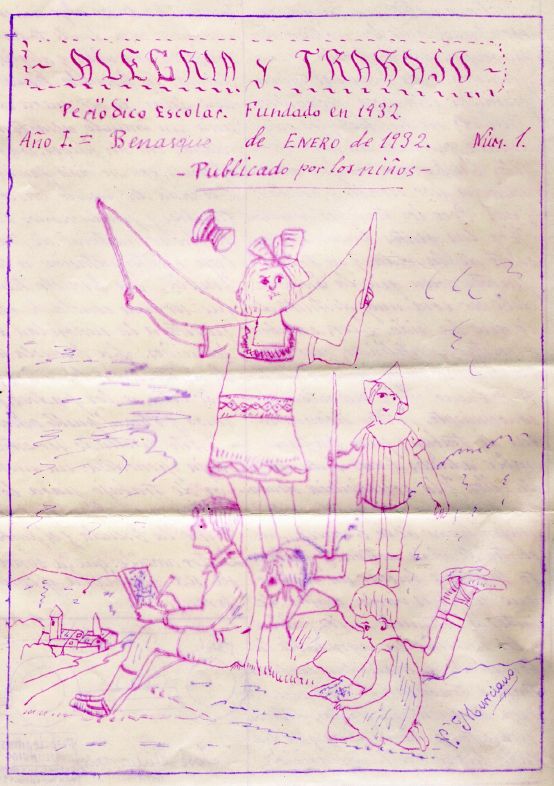 - ALEGRIA y TRABAJO -
Periödico Escolar. Fundado en 1932
Año I. = Benasque de ENERO de 1932. Núm. 1.
- Publicado por los niños -
P. Murciano